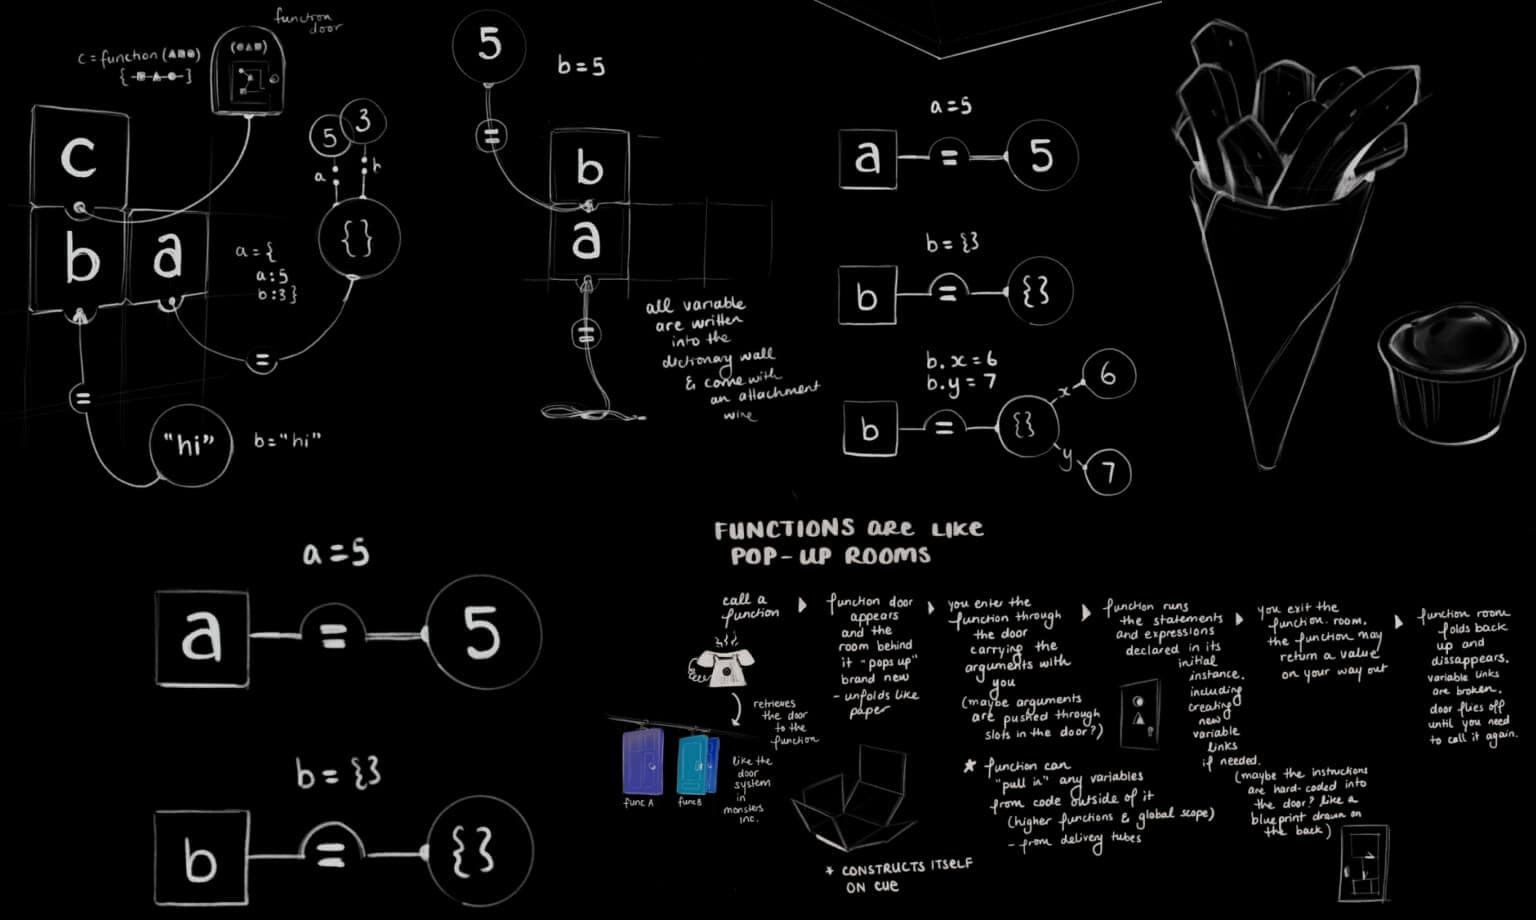 function
door
c = function (▲■●)
{ ■ ▲ ● }
(●▲■)
c
b
a
5
3
a
b
{}
a = {
a:5
b:3}
=
=
"hi"
b="hi"
5
b=5
=
b
a
=
all variable
are written
into the
dictionary wall
& come with
an attachment
wire
a=5
a
=
5
b={}
b
=
{}
b.x=6
b.y=7
b
=
{}
x
6
y
7
a=5
a
=
5
b={}
b
=
{}
FUNCTIONS ARE LIKE
POP-UP ROOMS
call a
function
retrieves
the door
to the
function
like the
door
system
in
monsters
inc.
func A
func B
function door
appears
and the
room behind
it "pops up"
brand new
- unfolds like
paper
* CONSTRUCTS ITSELF
ON CUE
you enter the
function through
the door
carrying the
arguments with
you
(maybe arguments
are pushed through
slots in the door?)
* function can
"pull in" any variables
from code outside of it
(higher functions & global scope)
- from delivery tubes
function runs
the statements
and expressions
declared in its
initial
instance,
including
creating
new
variable
links
if needed.
(maybe the instructions
are hard-coded into
the door? like a
blueprint drawn on
the back)
you exit the
function room.
the function may
return a value
on your way out
function room
folds back
up and
dissappears.
variable links
are broken.
door flies off
until you need
to call it again.